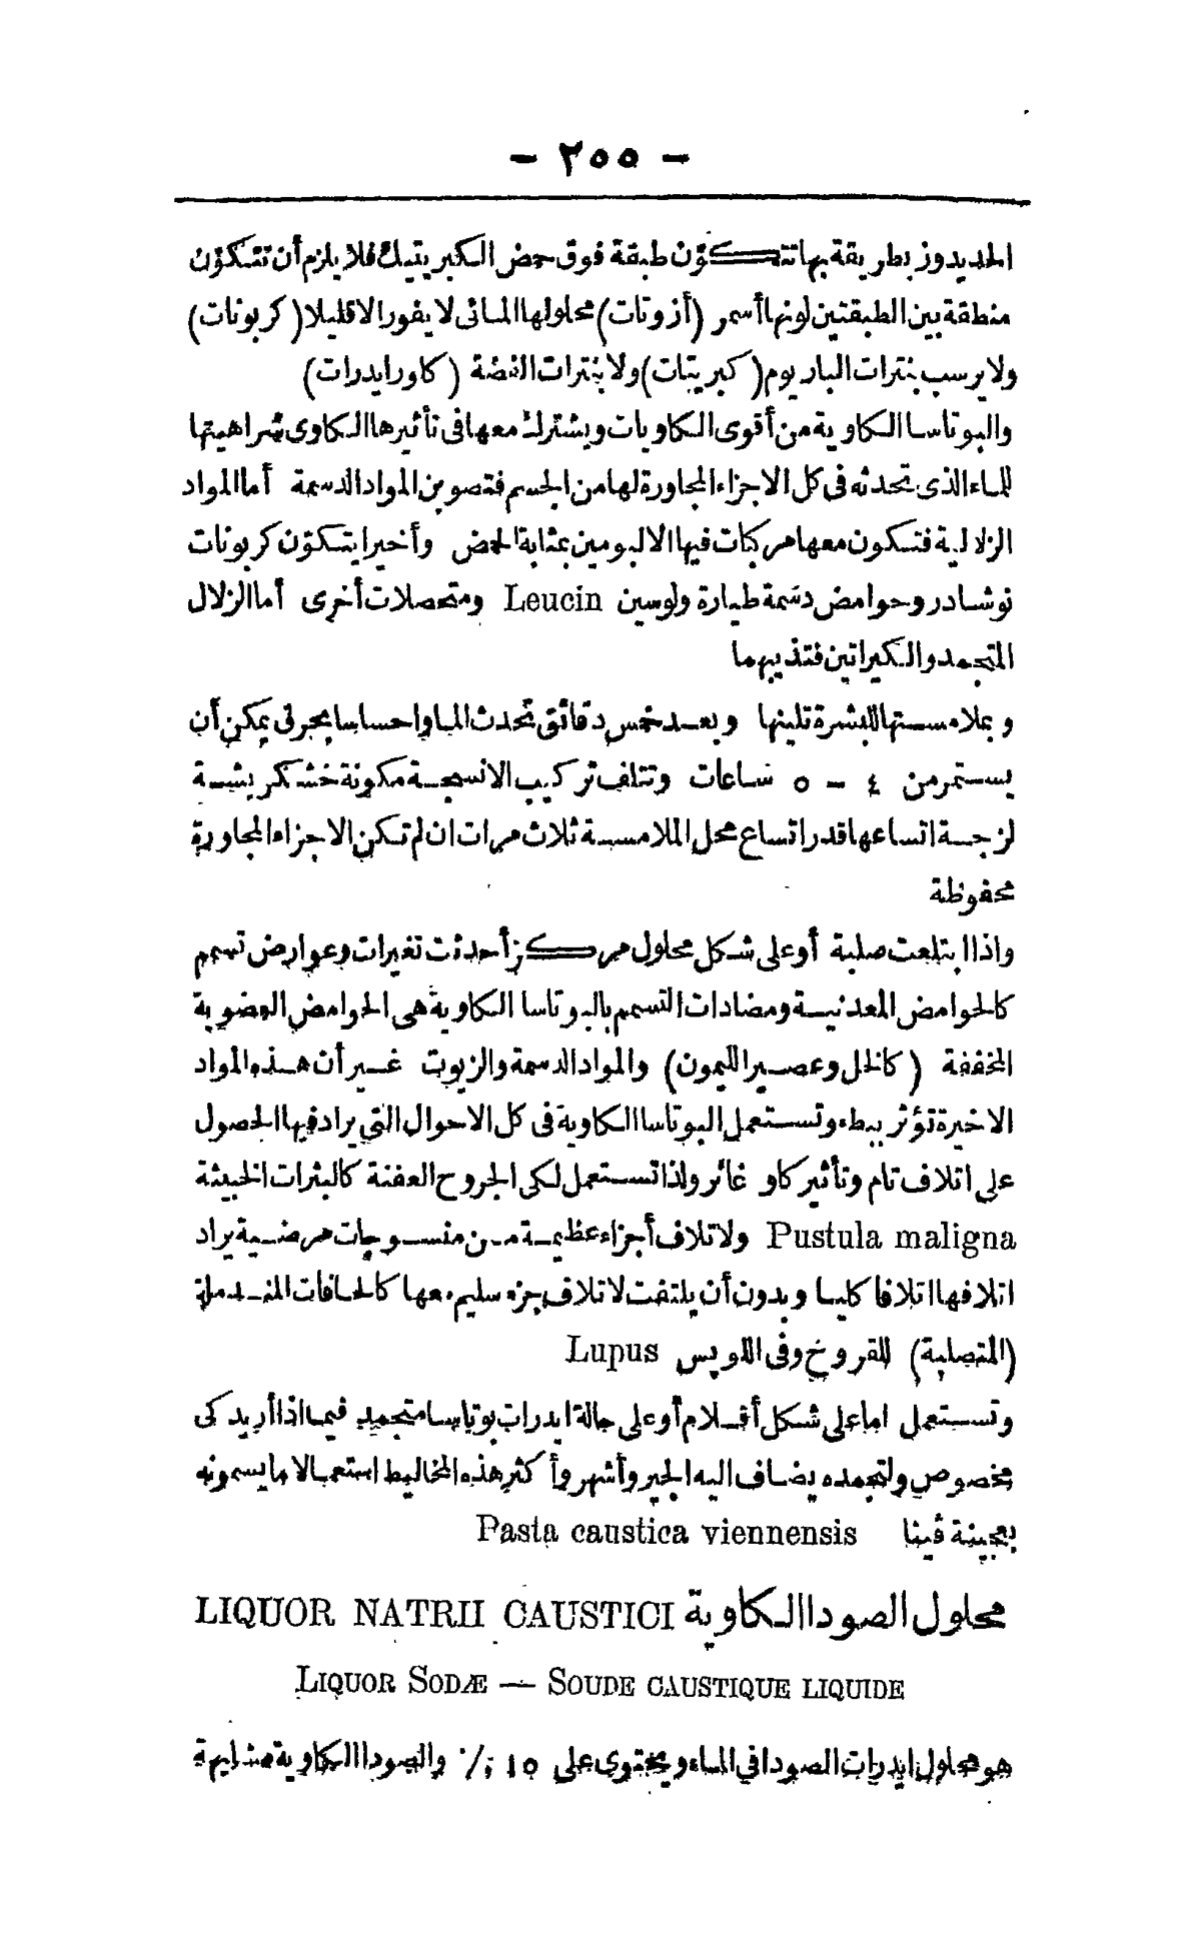 - ٢٥٥ -
الحديدوز بطريقة بها تتكوّن طبقة فوق حمض الكبريتيك فلا يلزم أن تتكوّن
منطقة بين الطبقتين لونها أسمر (أزوتات) محلولها المائى لا يفور الا قليلا (كربونات)
ولا يرسب بنترات الباريوم (كبريتات) ولا بنترات الفضة (كاورايدرات)
والبوتاسا الكاوية من أقوى الكاويات ويشترك معها فى تأثيرها الكاوى شراهيتها
للماء الذى تحدثه فى كل الاجزاء المجاورة لها من الجسم فتصوبن المواد الدسمة أما المواد
الزلالية فتكون معها مركبات فيها الالبومين بمثابة الحمض وأخيرا يتكوّن كربونات
نوشادر وحوامض دسمة طيارة ولوسين Leucin ومتحصلات أخرى أما الزلال
المتجمد والكيراتين فتذيبهما
وبملامستها للبشرة تلينها وبعد خمس دقائق تحدث المبا واحساسا بحرقى يمكن أن
يستمر من ٤ - ٥ ساعات وتتلف تركيب الانسجة مكونة خشكريشة
لزجة اتساعها قدر اتساع محل الملامسة ثلاث مرات ان لم تكن الاجزاء المجاورة
محفوظة
واذا ابتلعت صلبة أو على شكل محلول مركز أحدثت تغيرات وعوارض تسمم
كالحوامض المعدنية ومضادات التسمم بالبوتاسا الكاوية هى الحوامض العضوية
المخففة (كالخل وعصير الليمون) والمواد الدسمة والزيوت غير أن هذه المواد
الاخيرة تؤثر ببطء وتستعمل البوتاسا الكاوية فى كل الاحوال التى يراد فيها الحصول
على اتلاف تام وتأثير كاو غائر ولذا تستعمل لكى الجروح العفنة كالبثرات الخبيثة
Pustula maligna ولاتلاف أجزاء عظيمة من منسوجات مرضية يراد
اتلافها اتلافا كليا وبدون أن يلتفت لاتلاف جزء سليم معها كالحافات المندملة
(المتصلبة) للقروح وفى اللوپس Lupus
وتستعمل اما على شكل أقلام أو على حالة ايدرات بوتاسا متجمد فيما اذا أريد كى
مخصوص ولتجمده يضاف اليه الجير وأشهر وأكثر هذه المخاليط استعمالا ما يسمونه
بعجينة ڤينا Pasta caustica viennensis
محلول الصودا الكاوية LIQUOR NATRII CAUSTICI
LIQUOR SODÆ — SOUDE CAUSTIQUE LIQUIDE
هو محلول ايدرات الصودا فى الماء ويحتوى على ١٥ ٪ والصودا الكاوية مشابهة